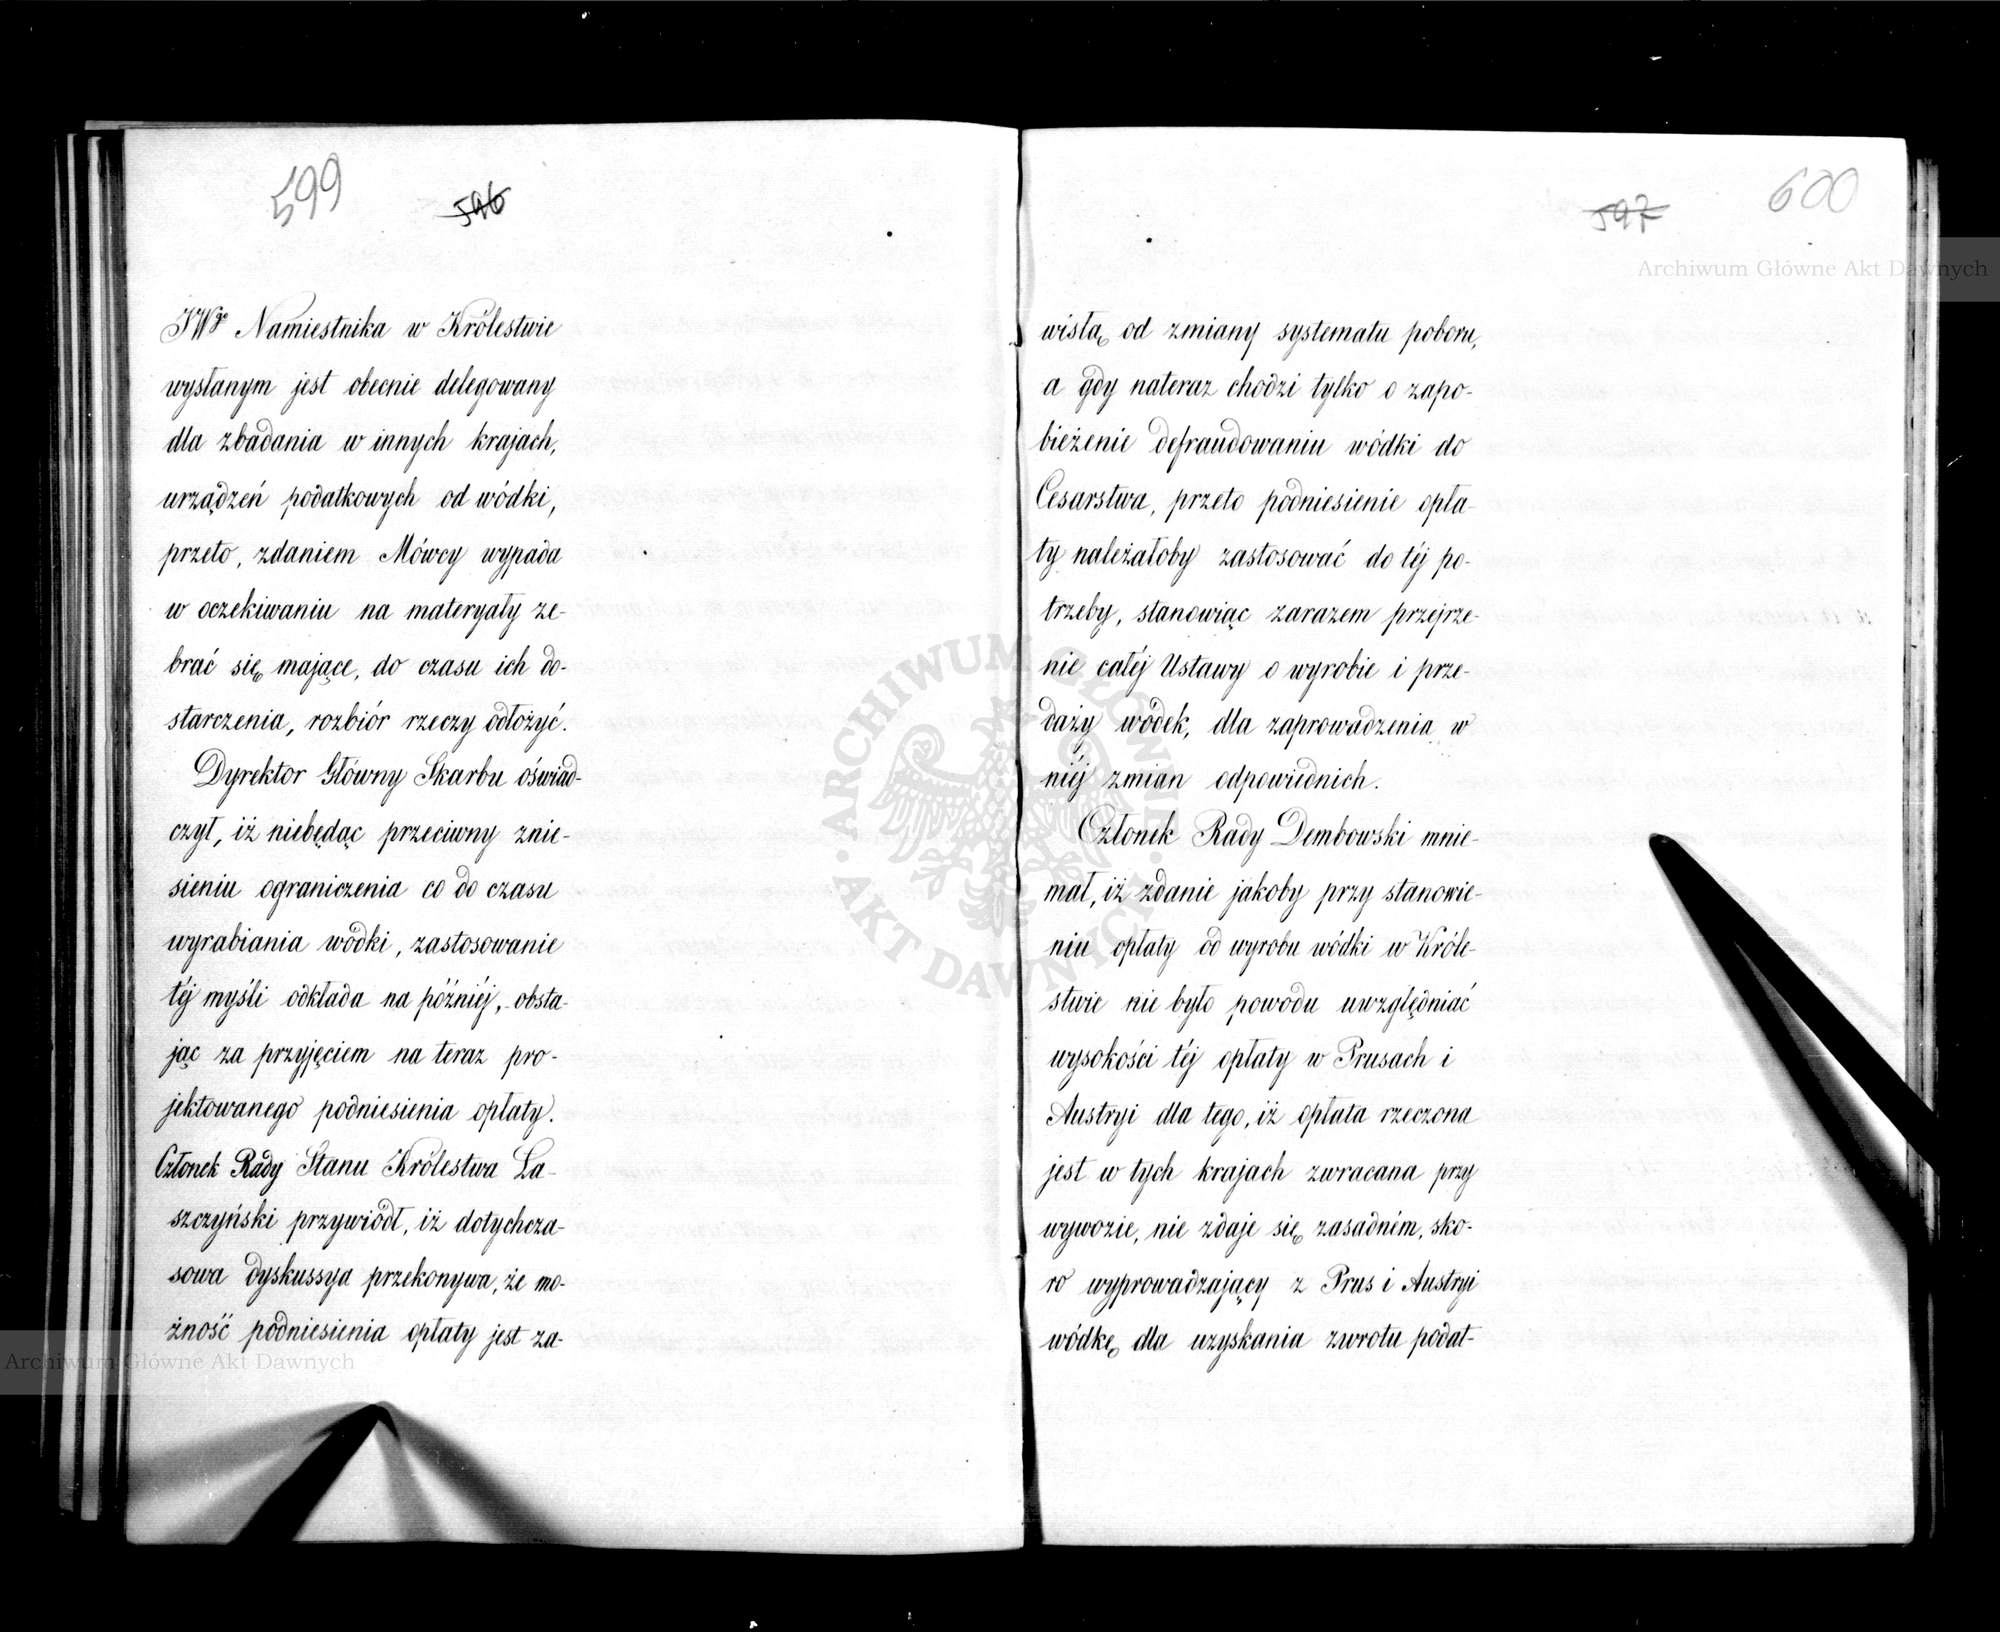 599
596
JWgo Namiestnika w Królestwie
wysłanym jest obecnie delegowany
dla zbadania w innych krajach,
urządzeń podatkowych od wódki,
przeto, zdaniem Mówcy wypada
w oczekiwaniu na materyały ze-
brać się mające, do czasu ich do-
starczenia, rozbiór rzeczy odłożyć.
Dyrektor Główny Skarbu oświad-
czył, iż niebędąc przeciwny znie-
sieniu ograniczenia co do czasu
wyrabiania wódki, zastosowanie
téj myśli odkłada na późniéj, obsta-
jąc za przyjęciem na teraz pro-
jektowanego podniesienia opłaty.
Członek Rady Stanu Królestwa Ła-
szczyński przywiódł, iż dotychcza-
sowa dyskussya przekonywa, że mo-
żność podniesienia opłaty jest za-
597
600
wisłą od zmiany systematu poboru,
a gdy nateraz chodzi tylko o zapo-
bieżenie defraudowaniu wódki do
Cesarstwa, przeto podniesienie opła-
ty należałoby zastosować do téj po-
trzeby, stanowiąc zarazem przejrze-
nie całéj Ustawy o wyrobie i prze-
daży wódek, dla zaprowadzenia w
niéj zmian odpowiednich.
Członek Rady Dembowski mnie-
mał, iż zdanie jakoby przy stanowie-
niu opłaty od wyrobu wódki w Króle-
stwie nie było powodu uwzględniać
wysokości téj opłaty w Prusach i
Austryi dla tego, iż opłata rzeczona
jest w tych krajach zwracana przy
wywozie, nie zdaje się zasadném, sko-
ro wyprowadzający z Prus i Austryi
wódkę dla uzyskania zwrotu podat-
Archiwum Główne Akt Dawnych
Archiwum Główne Akt Dawnych
ARCHIWUM GŁÓWNE · AKT DAWNYCH ·